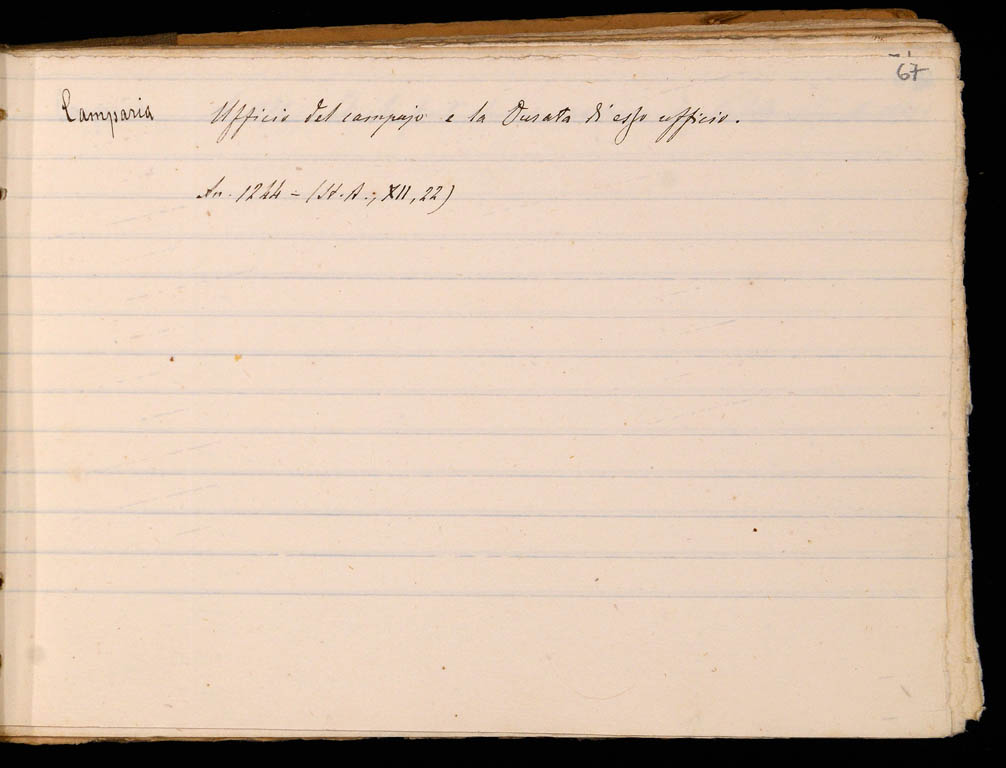 67
Camparia Ufficio del campajo e la Durata di esso ufficio.
An. 1244 = (St. A., XII, 22)